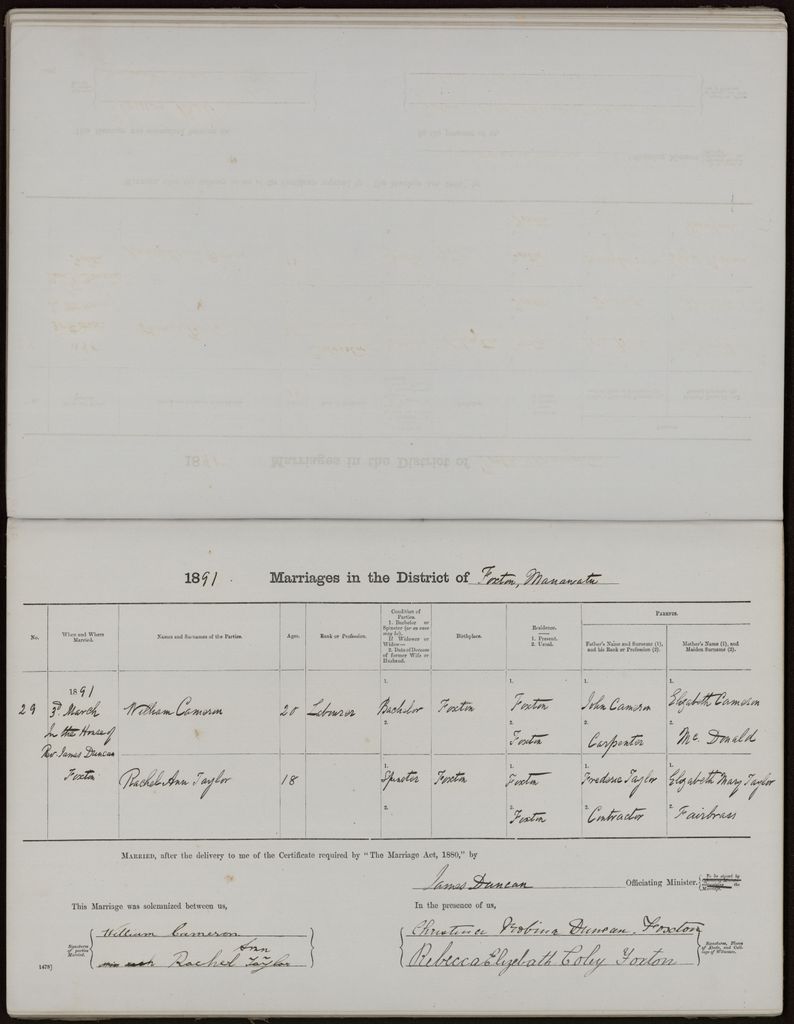 1891. Marriages in the District of Foxton, Manawatu
PARENTS.
No.
When and Where Married.
Names and Surnames of the Parties.
Ages.
Rank or Profession.
Condition of Parties.
1. Bachelor or Spinster (or as case may be).
If Widower or Widow—
2. Date of Decease of former Wife or Husband.
Birthplace.
Residence.
1. Present.
2. Usual.
Father's Name and Surname (1), and his Rank or Profession (2).
Mother's Name (1), and Maiden Surname (2).
29
1891
3d. March
In the House of
Rev. James Duncan
Foxton
William Cameron
20
Labourer
1. Bachelor
2.
Foxton
1. Foxton
2. Foxton
1. John Cameron
2. Carpenter
1. Elizabeth Cameron
2. Mc. Donald
Rachel Ann Taylor
18
1. Spinster
2.
Foxton
1. Foxton
2. Foxton
1. Frederic Taylor
2. Contractor
1. Elizabeth Mary Taylor
2. Fairbrass
MARRIED, after the delivery to me of the Certificate required by "The Marriage Act, 1880," by
James Duncan Officiating Minister.
This Marriage was solemnized between us,
In the presence of us,
Signatures of parties Married.
William Cameron
Rachel Ann Taylor
Christina Robina Duncan. Foxton
Rebecca Elizebath Coley Foxton
Signatures, Places of Abode, and Callings of Witnesses.
1478]